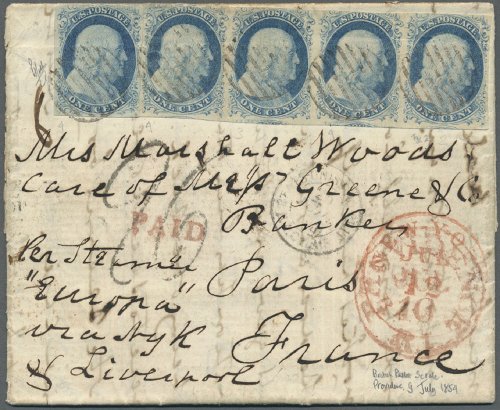 U.S. POSTAGE U.S. POSTAGE U.S. POSTAGE U.S. POSTAGE U.S. POSTAGE
ONE CENT ONE CENT ONE CENT ONE CENT ONE CENT
Mrs Marshall Woods
Care of Messrs Greene & Co
PAID
Bankers
Per Steamer
Paris
"Europa"
France
via N.Yk
& Liverpool
NEW-YORK
JUL
10
Providence, 9 July 1854